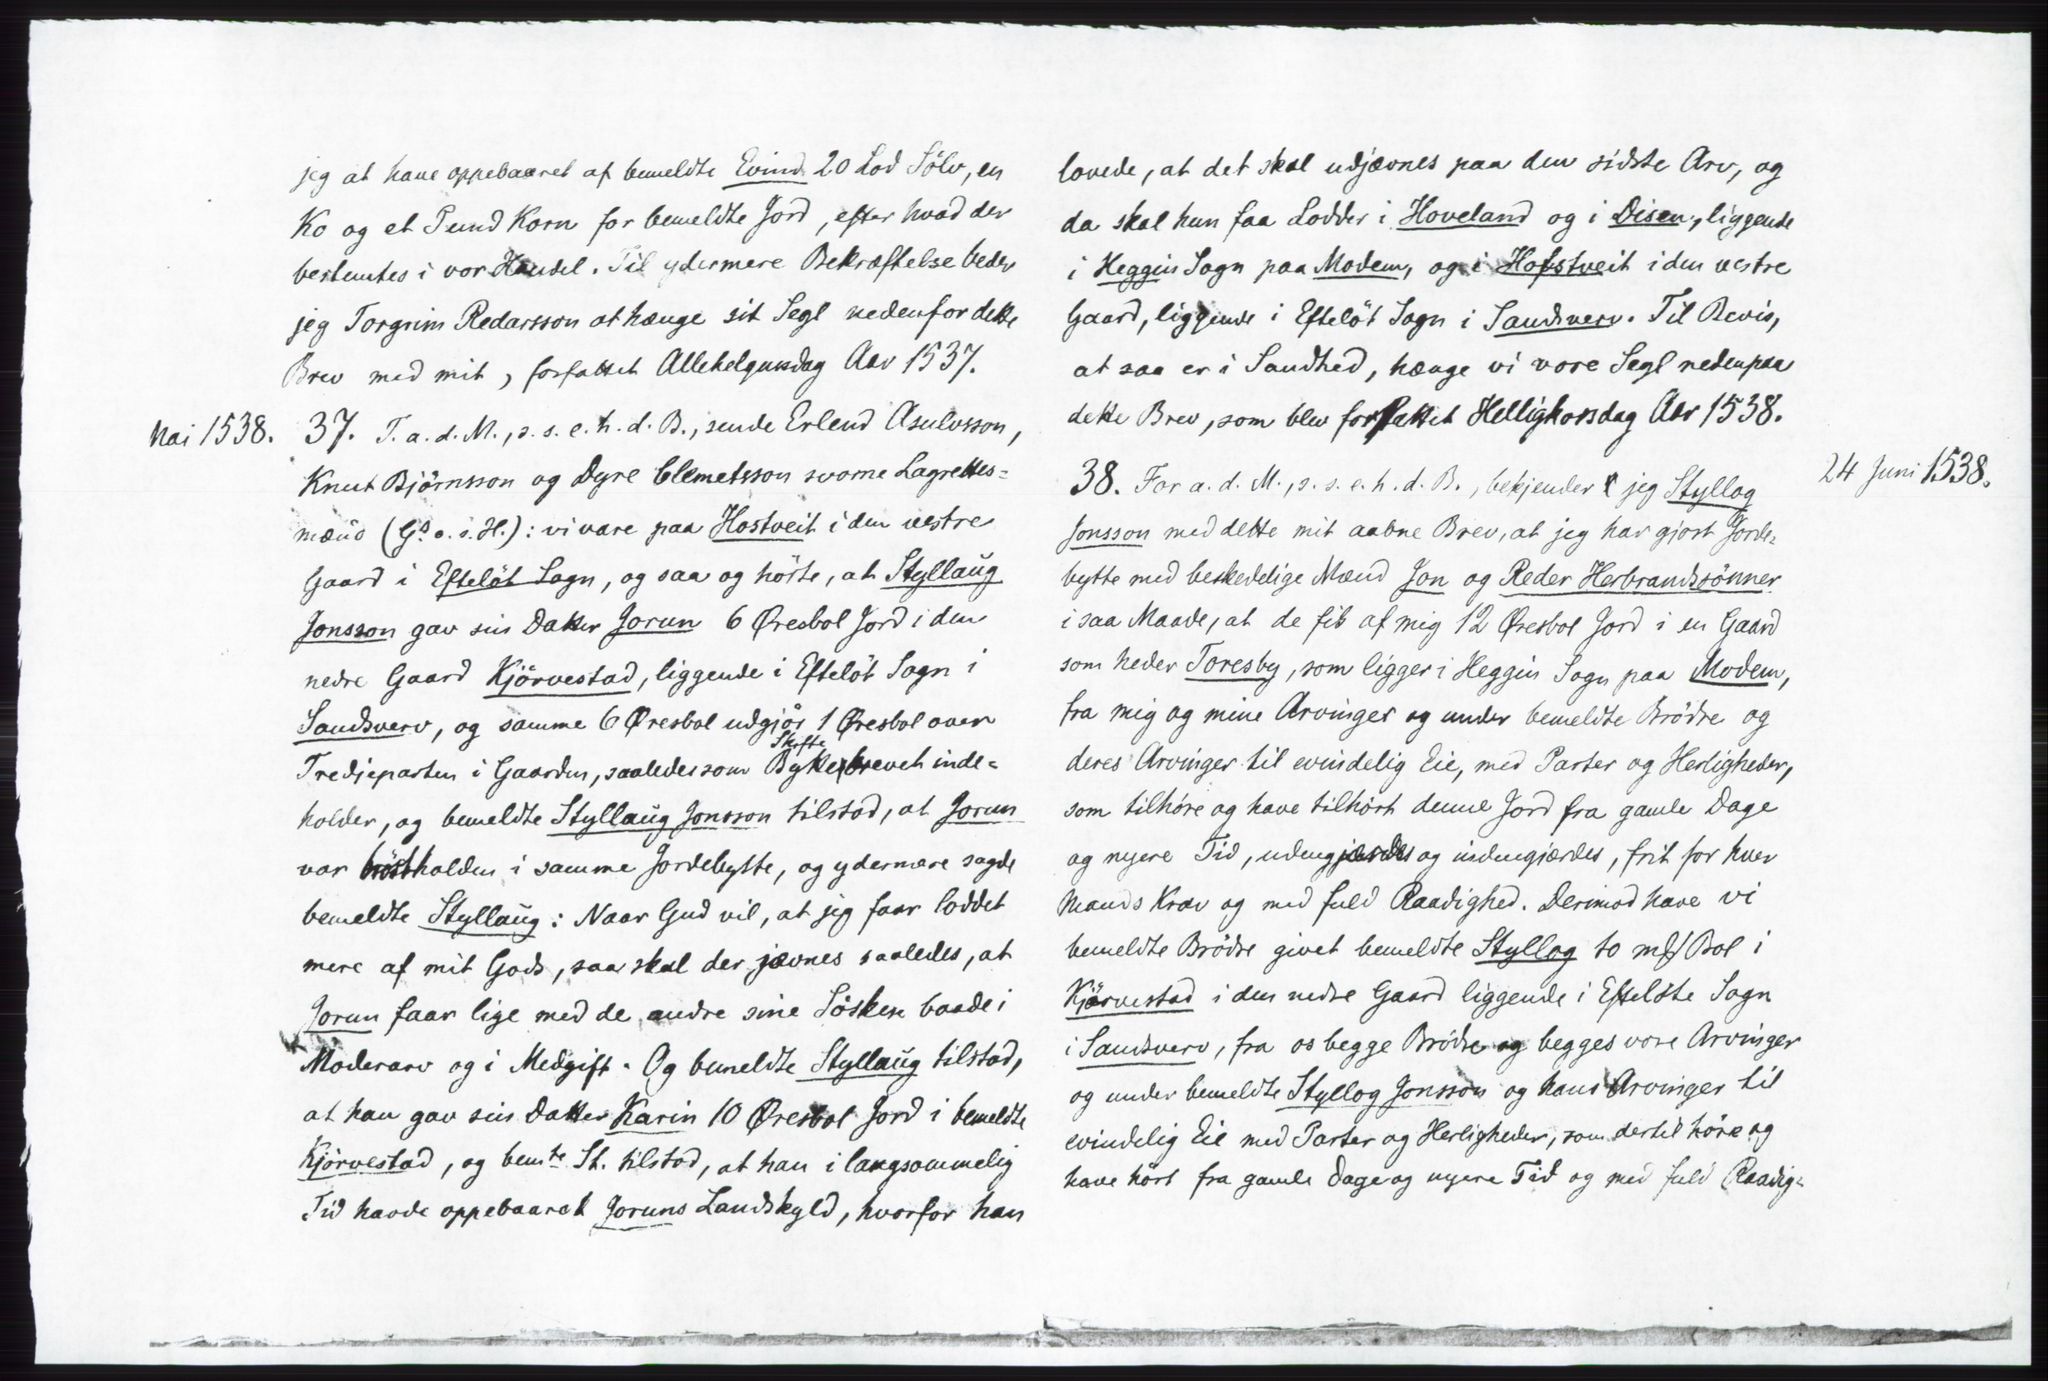 jeg at have oppebaaret af bemeldte Evind 20 Lod Sölv, en
Ko og et Pund Korn for bemeldte Jord, efter hvad der
bestemtes i vor Handel. Til ydermere Bekræftelse beder
jeg Torgrim Redarsson at hænge sit Segl nedenfor dette
Brev med mit, forfattet Allehelgensdag Aar 1537.
Mai 1538. 37. T. a. d. M., s. s. e. h. d. B., sende Erlend Asulvsson,
Knut Björnsson og Dyre Clemetsson svorne Lagrettes=
mænd (Gs. o. s. H.): vi vare paa Hostveit i den vestre
Gaard i Efteløt Sogn, og saa og hörte, at Styllaug
Jonsson gav sin Datter Jorun 6 Øresbol Jord i den
nedre Gaard Kjörvestad, liggende i Efteløt Sogn i
Sandsverv, og samme 6 Øresbol udgjör 1 Øresbol over
Skifte
Tredjeparten i Gaarden, saaledes som Bytte brevet inde=
holder, og bemeldte Styllaug Jonsson tilstod, at Jorun
var holden i samme Jordebytte, og ydermere sagde
bemeldte Styllaug: Naar Gud vil, at jeg faar loddet
mere af mit Gods, saa skal der jævnes saaledes, at
Jorun faar lige med de andre sine Sösken baade i
Moderarv og i Medgift. Og bemeldte Styllaug tilstod,
at han gav sin Datter Karin 10 Øresbol Jord i bemeldte
Kjörvestad, og bemte St. tilstod, at han i langsommelig
Tid havde oppebaaret Joruns Landskyld, hvorfor han
lovede, at det skal udjævnes paa den sidste Arv, og
da skal hun faa Lodder i Hoveland og i Disen, liggende
i Heggin Sogn paa Modem, og i Hofstveit i den vestre
Gaard, liggende i Efteløt Sogn i Sandsverv. Til Bevis,
at saa er i Sandhed, hænge vi vore Segl nedenpaa
dette Brev, som blev forfattet Hellighorsdag Aar 1538.
38. For a. d. M., s. s. e. h. d. B., bekjender jeg Styllog 24 Juni 1538.
Jonsson med dette mit aabne Brev, at jeg har gjort Jorde=
bytte med beskedelige Mænd Jon og Reder Herbrandssönner
i saa Maade, at de fik af mig 12 Øresbol Jord i en Gaard
som heder Toresby, som ligger i Heggin Sogn paa Modem,
fra mig og mine Arvinger og under bemeldte Brödre og
deres Arvinger til evindelig Eie, med Parter og Herligheder,
som tilhöre og have tilhört denne Jord fra gamle Dage
og nyere Tid, udengjærdes og indengjærdes, frit for hver
Mands Krav og med fuld Raadighed. Derimod have vi
bemeldte Brödre givet bemeldte Styllog to Bol i
Kjörvestad i den nedre Gaard liggende i Efteløte Sogn
i Sandsverv, fra os begge Brödre og begges vore Arvinger
og under bemeldte Styllog Jonsson og hans Arvinger til
evindelig Eie med Parter og Herligheder, som dertil höre og
have hört fra gamle Dage og nyere Tid og med fuld Raadig=